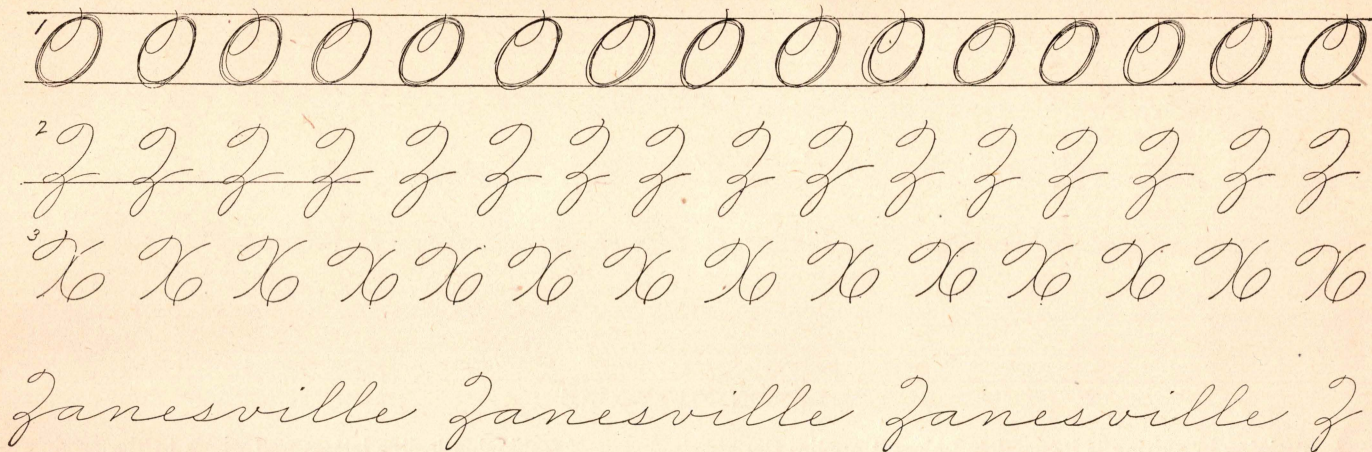 1 O O O O O O O O O O O O O O O
2 Z Z Z Z Z Z Z Z Z Z Z Z Z Z Z Z
3 X X X X X X X X X X X X X X
Zanesville Zanesville Zanesville Z